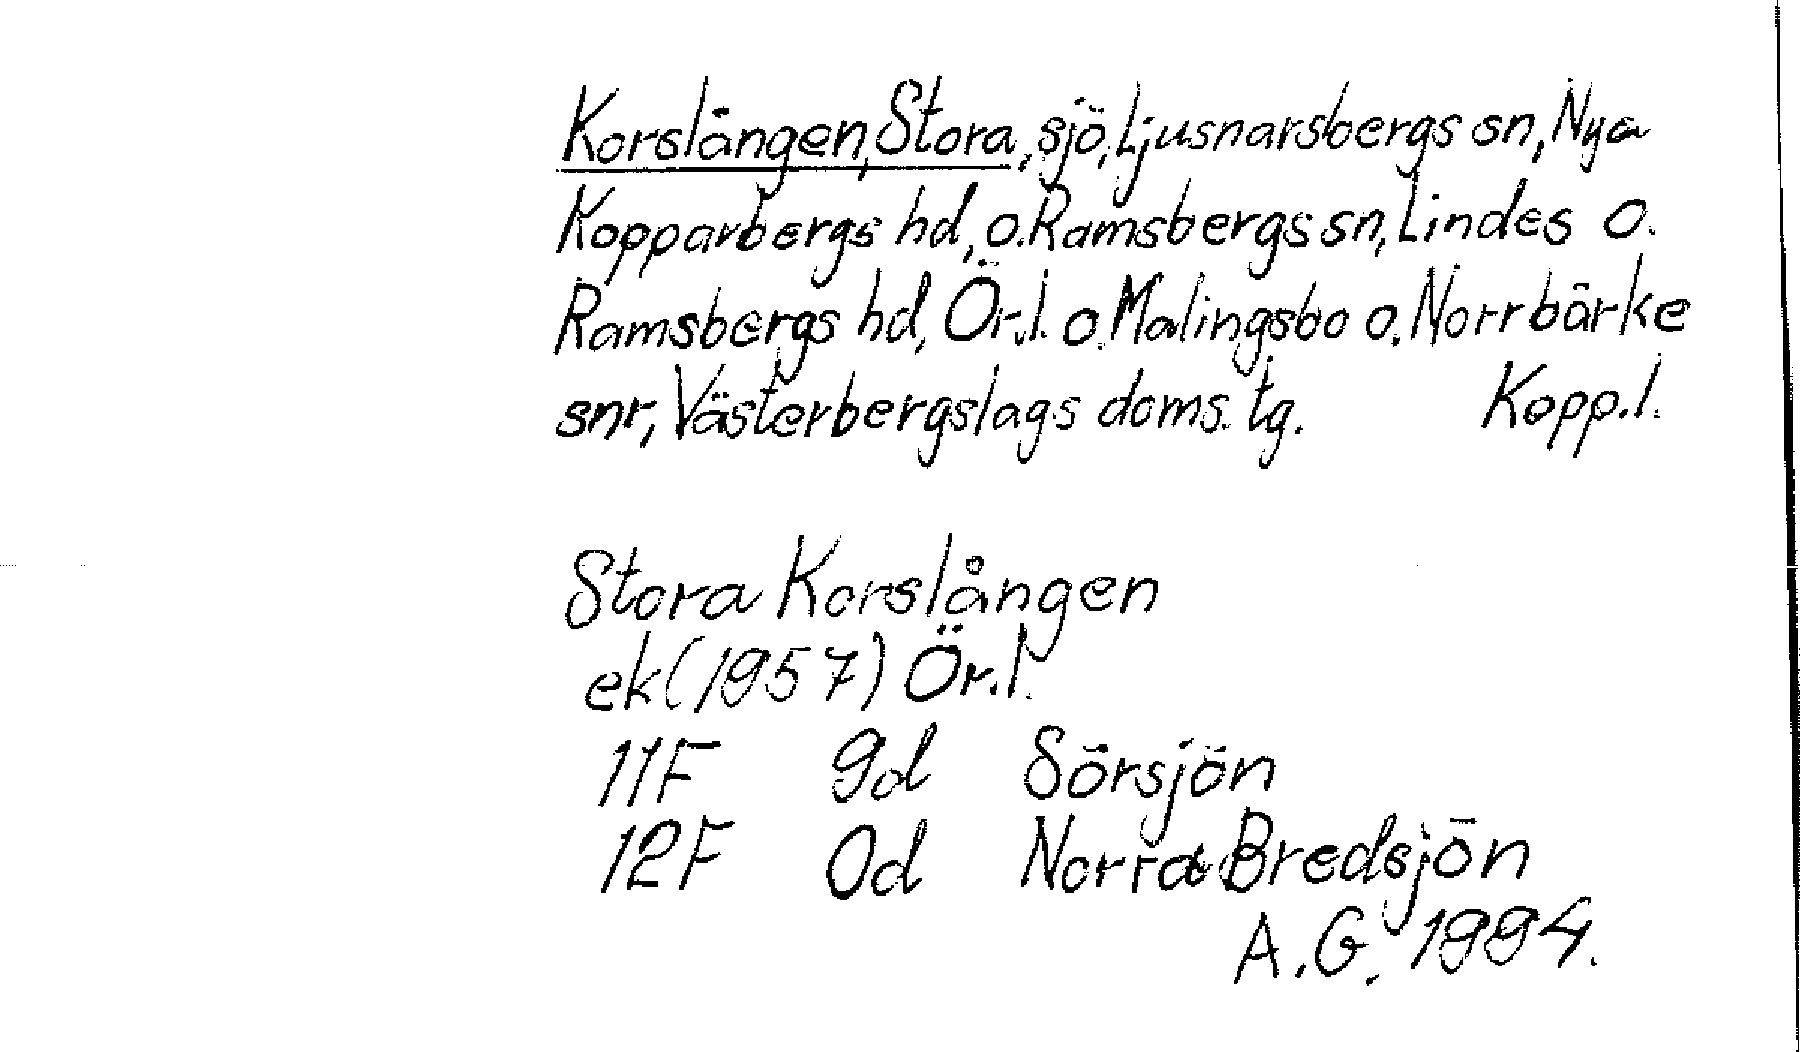 Korslången, Stora, sjö, Ljusnarsbergs sn, Nya
Kopparbergs hd, o. Ramsbergs sn, Lindes o.
Ramsbergs hd, Ör.l. o. Malingsbo o. Norrbärke
snr, Västerbergslags doms. tg. Kopp.l.
Stora Korslången
ek (1957) Ör.l.
11F 9d Sörsjön
12F 0d Norra Bredsjön
A.G. 1994.